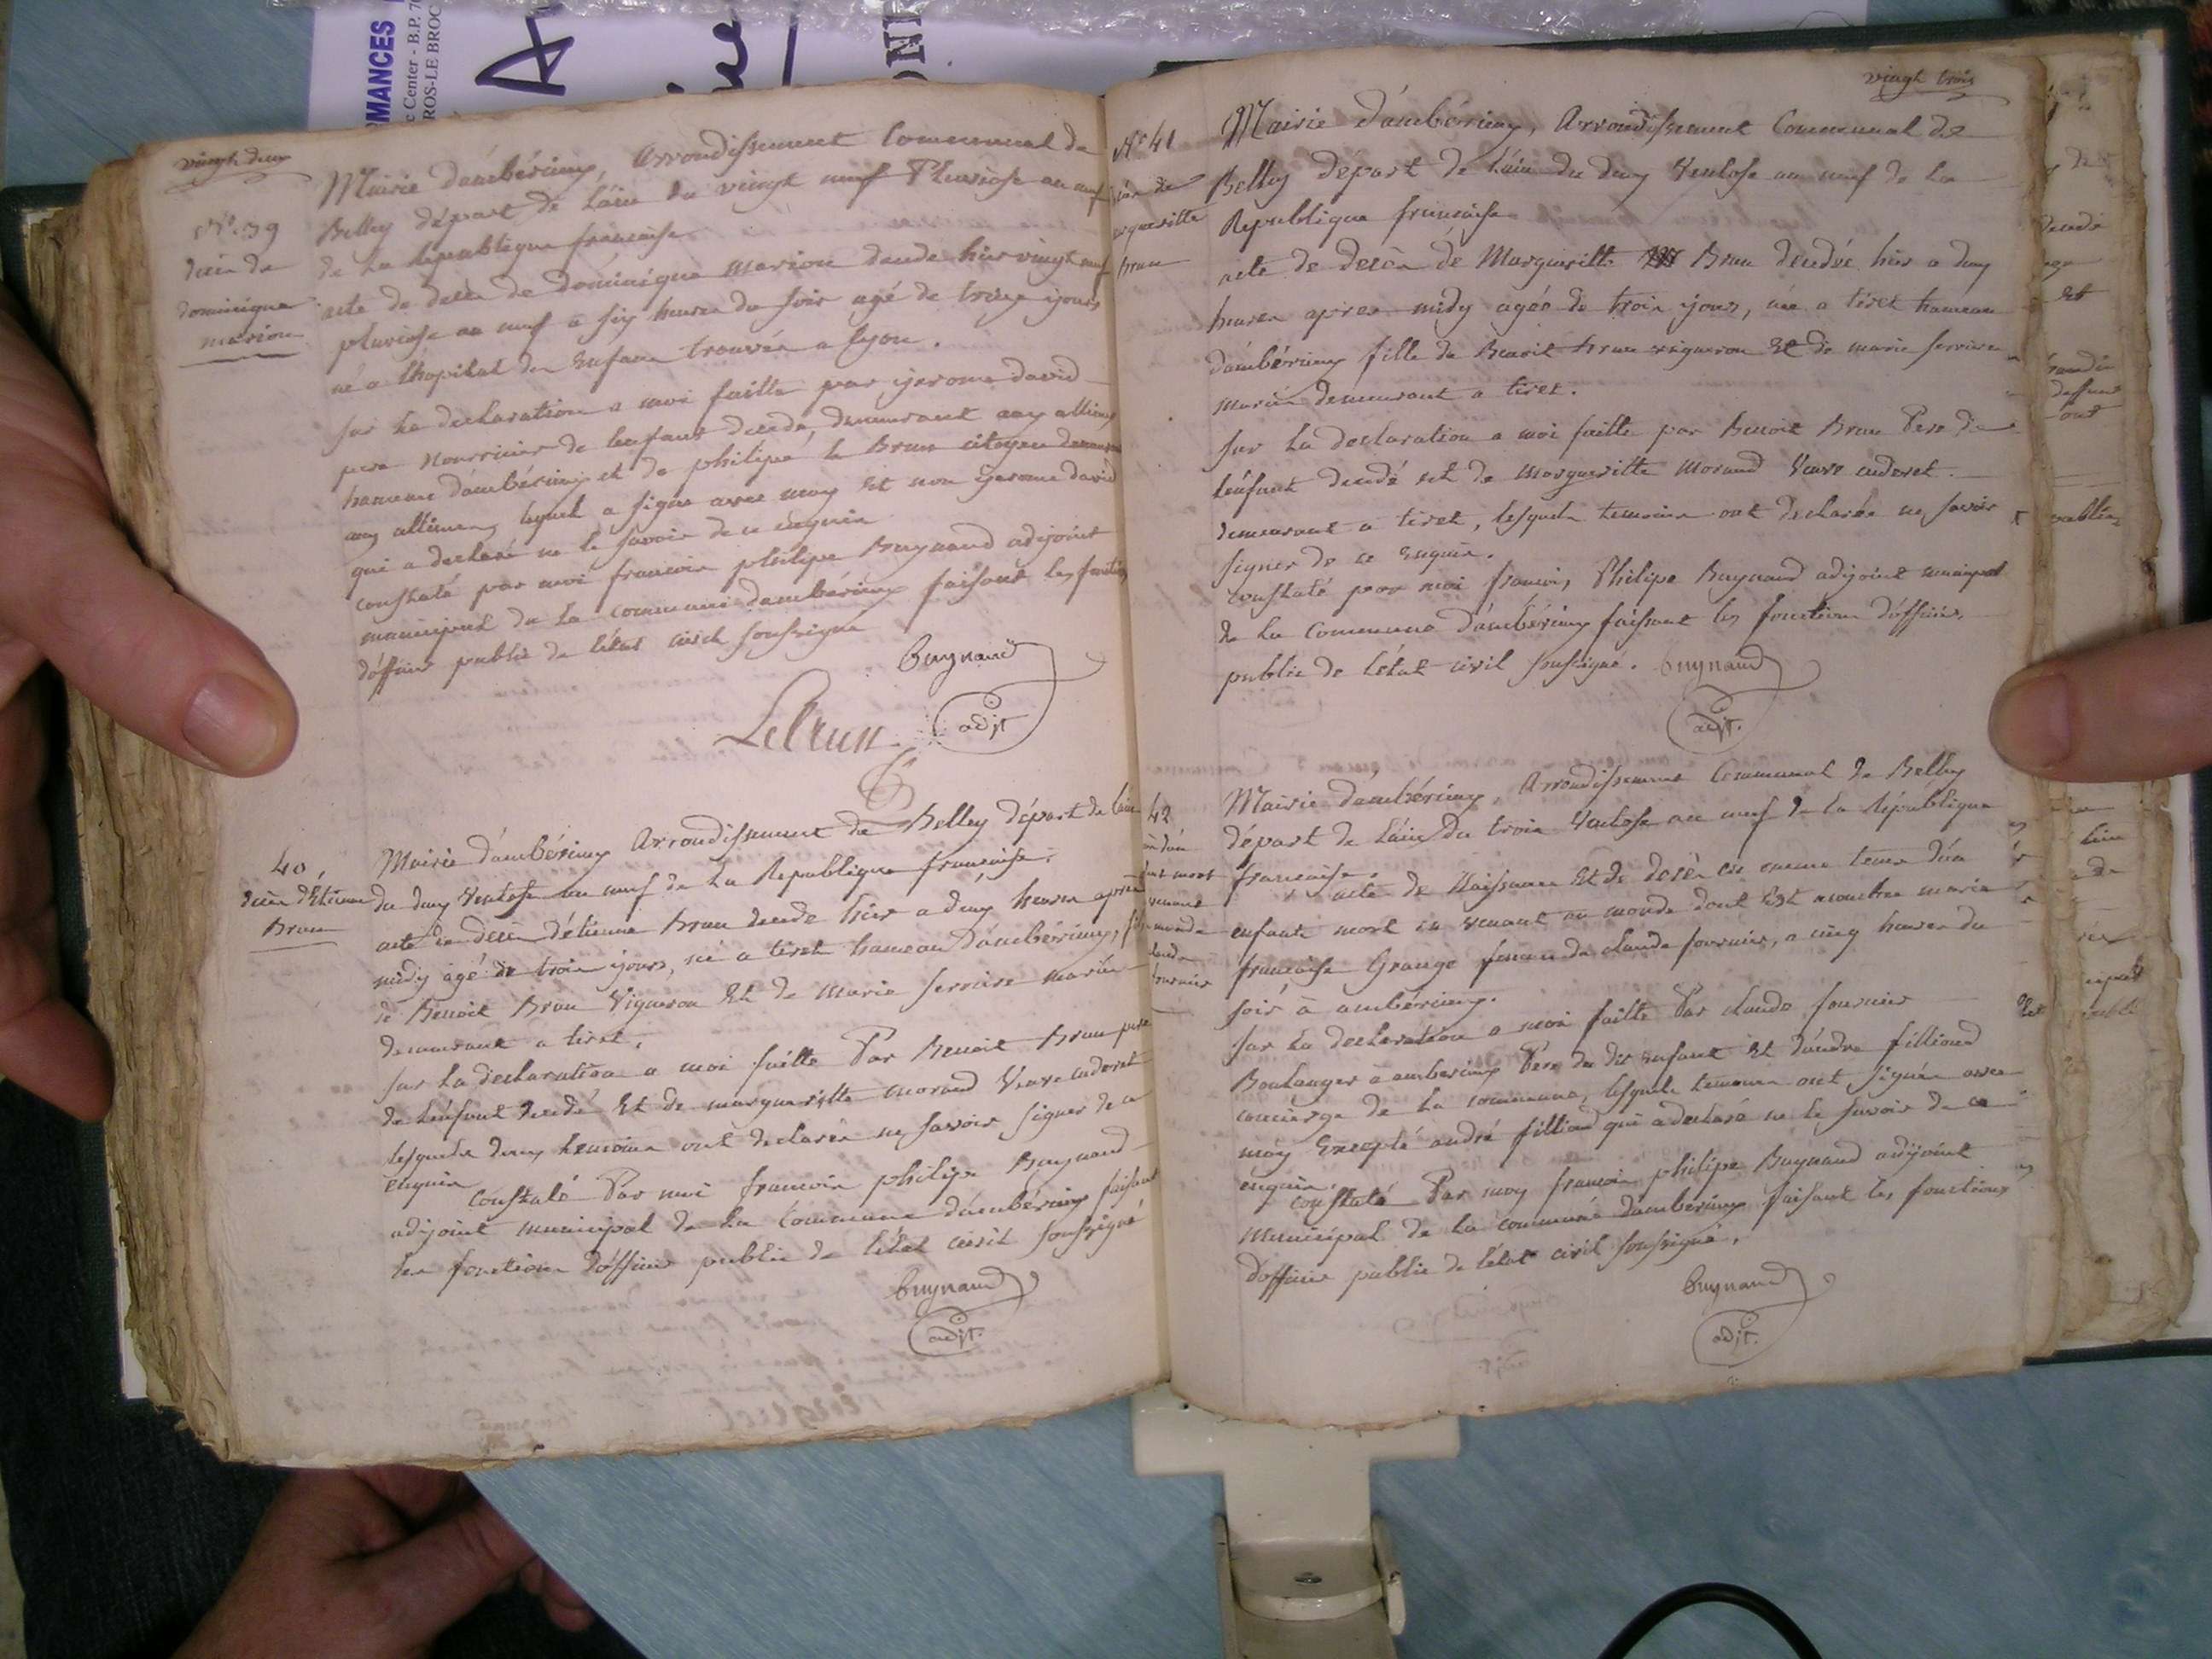 RMANCES
Center - B.P. 7
ROS-LE BROC
vingt deux
N° 39
décès de
dominique
marion
Mairie d'ambérieux, Arrondissement Communal de
Belley départ de l'ain du vingt neuf Pluviose an neuf
de La République francaise
acte de décès de dominique marion décédé hier vingt neuf
pluviose an neuf a six heures du soir agé de treize jours
né a l'hopital des Enfans trouvés a lyon.
sur La declaration a moi faitte par jerome david
pere nourricier de lenfant décédé, demeurant aux allimes
hameau d'ambérieux et de philipe le Brun citoyen demeurant
aux allimes lequel a signé avec moy Et non jerome david
qui a declaré ne le savoir de ce enquis
constaté par moi francois philipe Buynand adjoint
municipal de La commune d'ambérieux faisant les fonctions
d'officier public de létat civil soussigné
Buynand
adjt
LeBrun
40
décès d'Etienne
Brun
Mairie d'ambérieux Arrondissement de Belley départ de lain
du deux Ventose an neuf de La Republique francaise.
acte de décès d'étienne Brun décédé hier a deux heures apres
midy agé de trois jours, né a tiret hameau d'ambérieux, fils
de Benoit Brun Vigneron Et de Marie serviere mariés
demeurant a tiret.
sur La declaration a moi faitte Par Benoit Brun pere
de Lénfant décédé Et de margueritte morand Veuve cuderet
lesquels deux temoins ont declarés ne savoir signer de ce
enquis
Constaté Par moi francois philipe Buynand
adjoint municipal de La Commune d'ambérieux faisant
les fonctions d'officier public de létat civil soussigné
Buynand
adjt.
vingt trois
N° 41
décès de
margueritte
brun
Mairie d'ambérieux, Arrondissement Communal de
Belley départ de l'ain du deux Ventose an neuf de La
Republique francaise
acte de décès de Margueritte Brun décédée hier a deux
heures apres midy agée de trois jours, née a tiret hameau
d'ambérieux fille de Benoit brun vigneron Et de marie serviere
mariés demeurant a tiret.
sur La declaration a moi faitte par Benoit Brun Pere de
lénfant décédé et de margueritte morand Veuve cuderet
demeurant a tiret, lesquels temoins ont declarés ne savoir
signer de ce enquis.
constaté par moi francois Philipe Buynand adjoint municipal
de La Commune d'ambérieux faisant les fonctions d'officier
public de létat civil soussigné. Buynand
adjt.
42
Mairie d'ambérieux, Arrondissement Communal de Belley
départ de Láin Du trois Ventose an neuf de La République
francaise.
acte de Naissance Et de décès en meme tems d'un
enfant mort en venant au monde dont Est accouchée marie
francaise Grange femme de claude fournier, a cinq heures du
soir à ambérieux.
sur La declaration a moi faitte Par claude fournier
Boulanger à amberieux Pere du dit enfant Et d'andré filliond
concierge de La commune, lesquels temoins ont signés avec
moy Excepté andré filliond qui a declaré ne le savoir de ce
enquis.
constaté Par moy francois philipe Buynand adjoint
municipal de La commune d'ambérieux faisant les fonctions
d'officier public de létat civil soussigné.
Buynand
adjt.